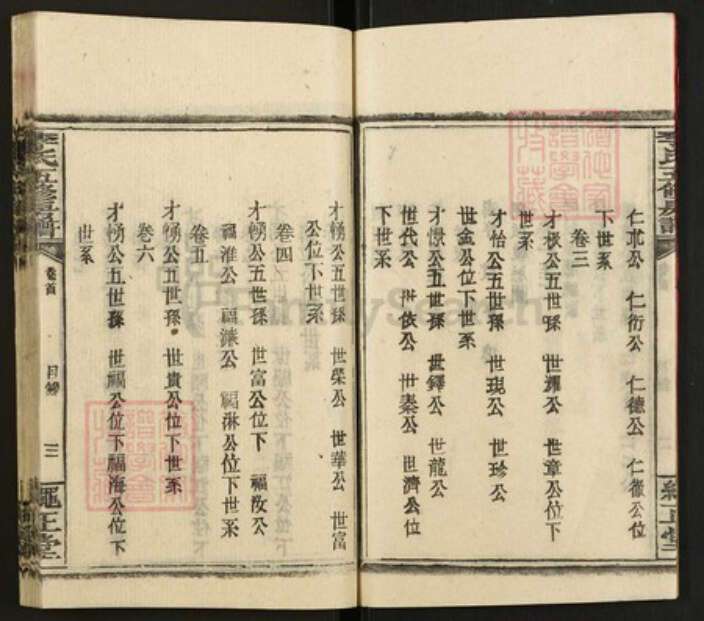 仁 公　仁衍公　仁德公　仁徹公位
下世系
卷三
才 公五世孫　世 公　世章公位下
世系
才怡公五世孫　世琨公　世珍公
世金公位下世系
才憬公五世孫　世鐸公　世龍公
世代公　世依公　世泰公　世濟公位
下世系
才 公五世孫　世榮公　世華公　世富
公位下世系
卷四
才 公五世孫　世富公位下　福汝公
福淮公　福 公　福淋公位下世系
卷五
才 公五世孫　世貴公位下世系
卷六
才 公五世孫　世福公位下福海公位下
世系
李氏五修房譜
卷首
目錄
三
繩正堂
FamilySearch